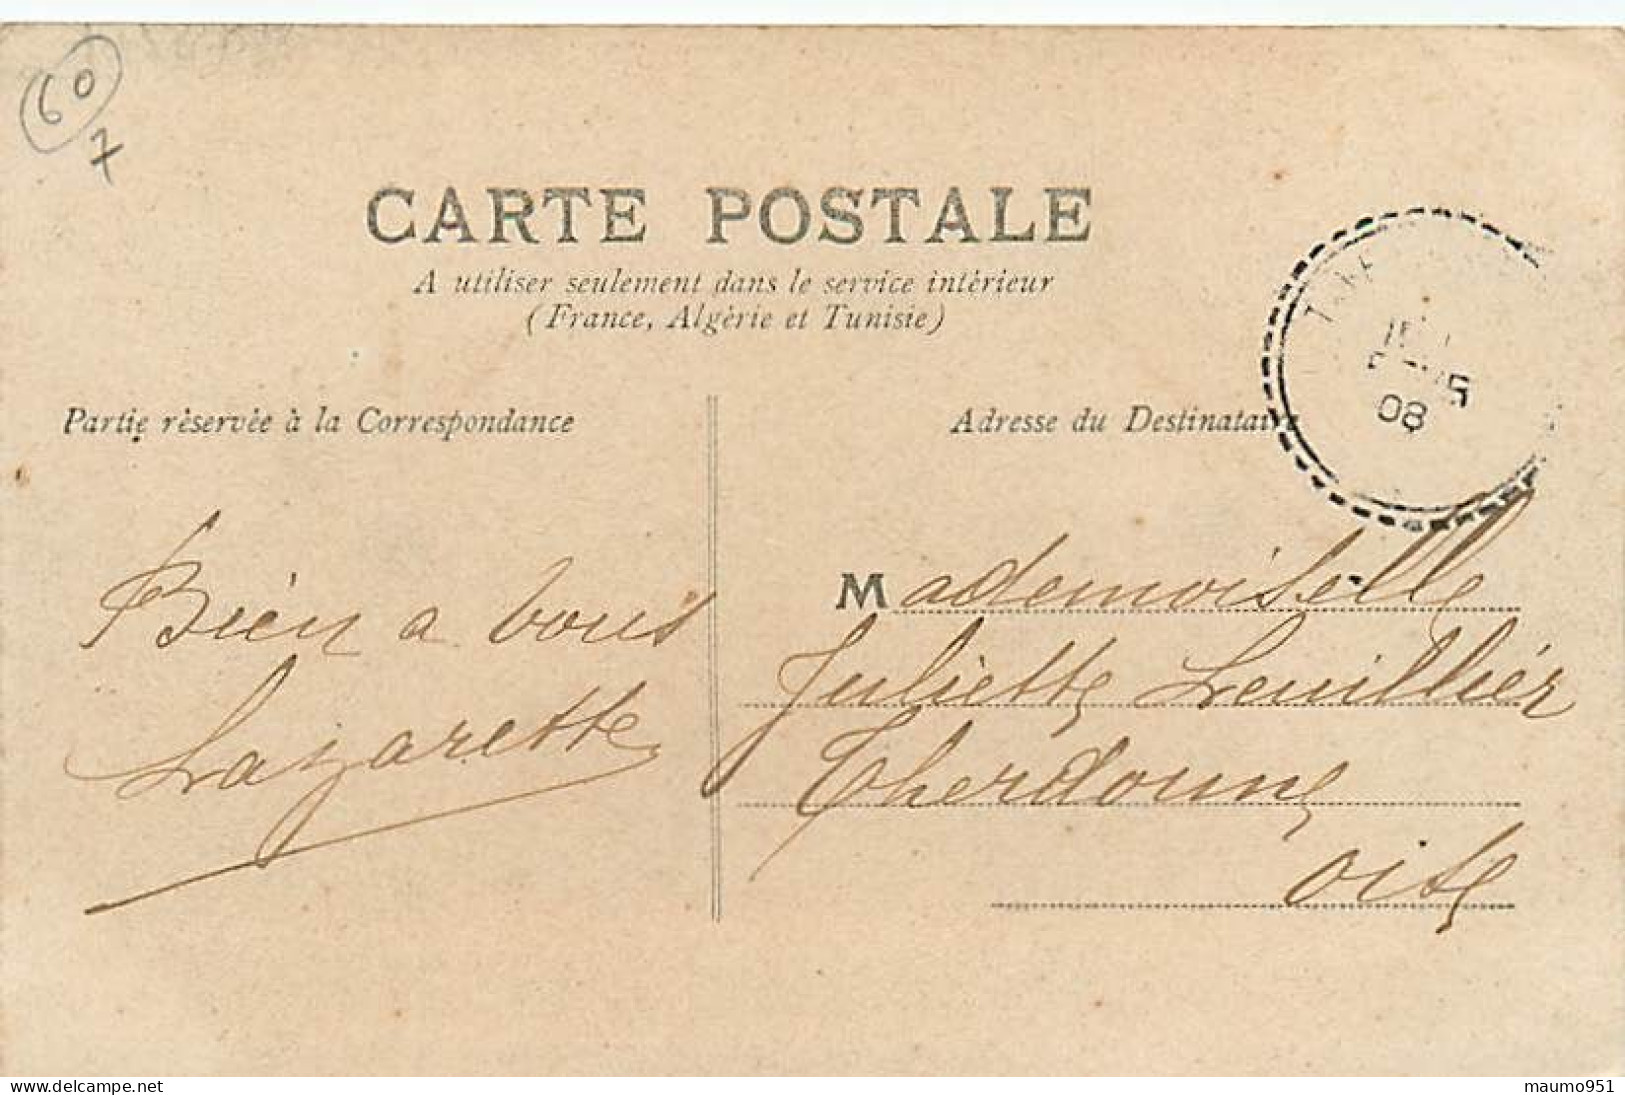 60
7
CARTE POSTALE
A utiliser seulement dans le service intérieur
(France, Algérie et Tunisie)
08
Partie réservée à la Correspondance
Adresse du Destinataire
Bien a vous
Lazarette
Mademoiselle
Juliette Leuillier
Therdonne
oise
delcampe.net
maumo951